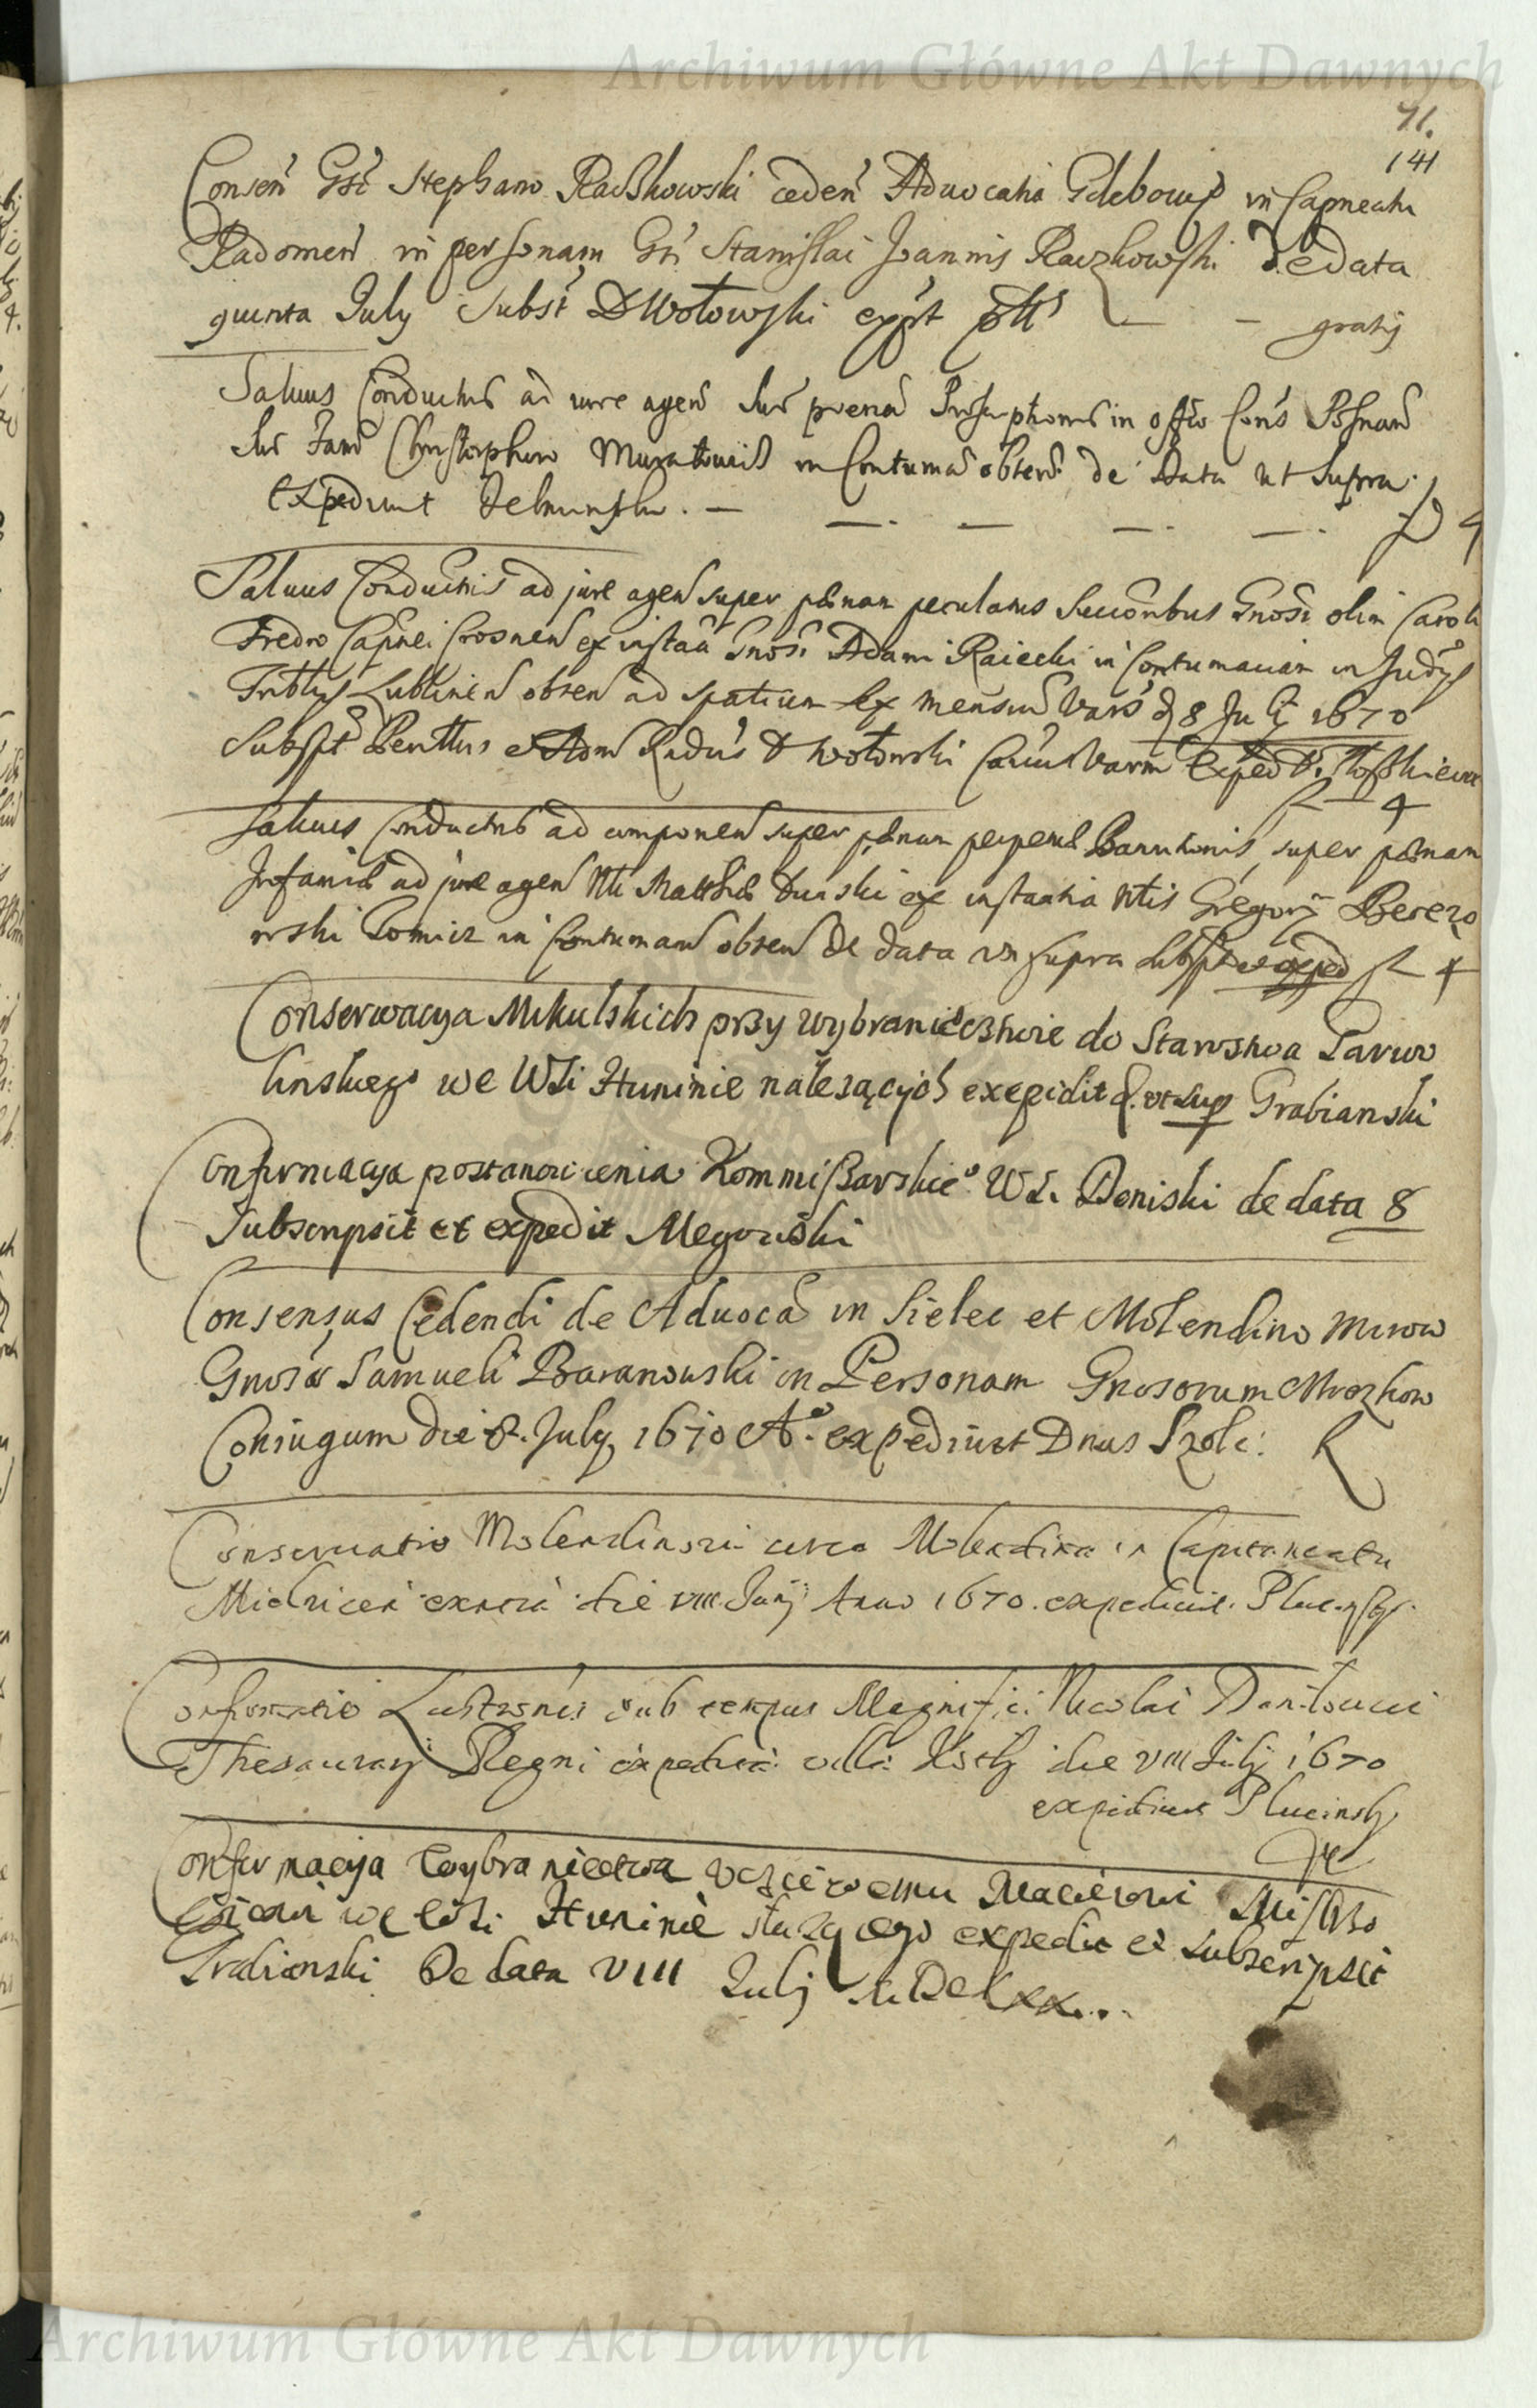 Archiwum Główne Akt Dawnych
71.
141
Consen Gsi Stephano Raczkowski ceden Advocatia Gdebow in Capneatu
Radomen in personam Gsi Stanislai Joannis Raczkowski de data
quinta July Subst D Wołowski exp̄t gratis
Salvus Conductus ad iure agen sup poena Proscriptionis in offo Cons Posnan
sup Fam Christophoro in Contuma obten de Data ut supra.
Expediunt 4
Salvus Conductus ad jure agen super poenam peculatus Succoribus Gnosi olim Caroli
Fredro Capnei Crosnen ex instaa Gnosi Adami Raiecki in Contumaciam in Judys
Triblis Lublinen obten ad spatium sex mensiu Vars d 8 July 1670
Subspt et Adm Radus D Wołowski Exped D.
Salvus Conductus ad componen super poenam perpetuae Bannitionis, super poenam
Infamiae ad jure agen Nli Matthiae ex instantia Nlis Gregory Berezo
wski Łomicz in Contumam obten de data ut supra Subspt et exped 4
Conserwacya Mikulskich przy Wybraniectwie do Starostwa
linskiego we Wsi Huninie należących expedit d. ut sup Grabianski
Confirmacya postanowienia Kommissarskiego Wsi Doniski de data 8
Subscripsit et expedit Alegowski
Consensus Cedendi de Advoca in Sielec et Molendino Mirow
Gnoso Samueli Baranowski in Personam Gnosorum Mrozkow
Coniugum die 8. July 1670 Ao. expediunt Dnus Szolc:
Conservatio Molendinari circa Molendina in Capitaneatu
Mielnicen die VIII July Anno 1670. expediuit.
Confirmatio Lustronis sub tempus Magnifici Nicolai Daniłowici
Thesaurary Regni villa die VIII July 1670
expediunt Plucinsky
Confirmacyja Wybraniectwa Maciejowi
we Wsi Huninie służącego expedit et subscripsit
Grabianski De data VIII July MDCLXX...
Archiwum Główne Akt Dawnych